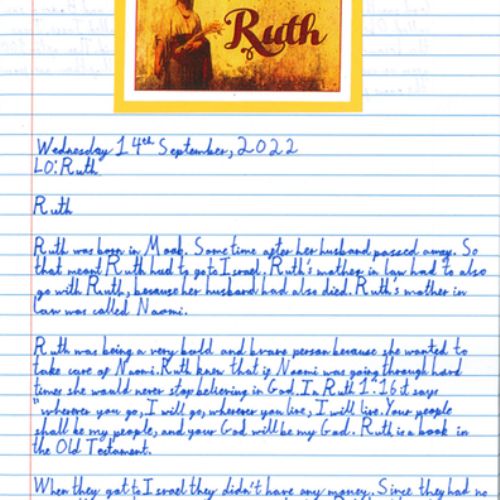 Ruth
Wednesday 14th September, 2022
LO: Ruth
Ruth
Ruth was born in Moab. Some time after her husband passed away. So
that meant Ruth had to go to Israel. Ruth's mother in law had to also
go with Ruth, because her husband had also died. Ruth's mother in
law was called Naomi.
Ruth was being a very bold and brave person because she wanted to
take care of Naomi. Ruth knew that if Naomi was going through hard
times she would never stop believing in God. In Ruth 1:16 it says
"wherever you go, I will go, wherever you live, I will live. Your people
shall be my people, and your God will be my God. Ruth is a book in
the Old Testament.
When they got to Israel they didn't have any money. Since they had no